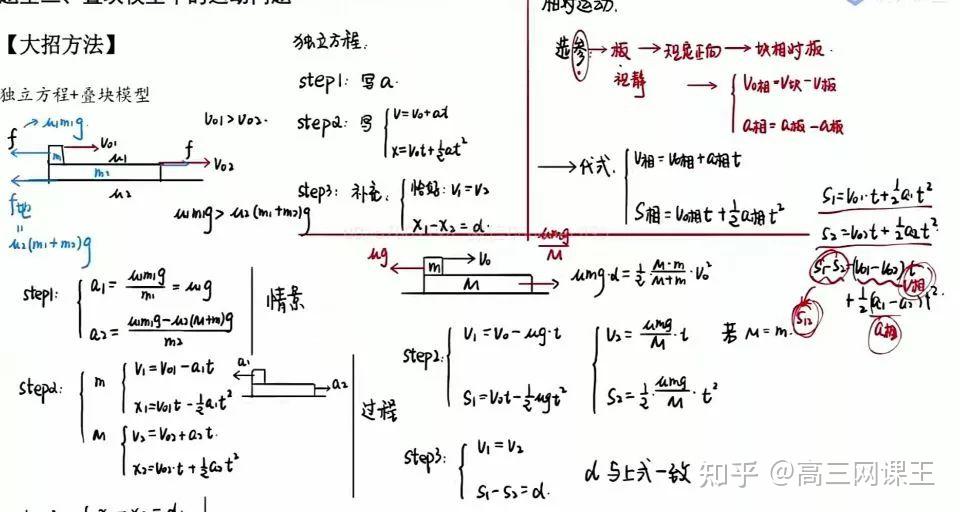 题型二、叠块模型中的运动问题
【大招方法】
独立方程+叠块模型
f → μ₁m₁g
m V₀₁ μ₁ f
m₂ V₀₂
μ₂
f地
=
μ₂(m₁+m₂)g
V₀₁>V₀₂
μ₁m₁g>μ₂(m₁+m₂)g
step1: { a₁=μm₁g/m₁=μg
a₂=(μm₁g-μ₂(M+m)g)/m₂
情景
step2: { m { V₁=V₀₁-a₁t
x₁=V₀₁t-½a₁t²
M { V₂=V₀₂+a₂t.
x₂=V₀₂·t+½a₂t²
a₁ a₂
过程
独立方程.
step1: 写a.
step2: 写 { V=V₀+at
x=V₀t+½at²
step3: 补充. { 恰好: V₁=V₂
x₁-x₂=d.
相对运动.
选参 → 板 → 规定正向 → 块相对板.
视静 → { V₀相=V块-V板
a相=a块-a板
→ 代式. { V相=V₀相+a相t
S相=V₀相t+½a相t²
S₁=V₀₁·t+½a₁t²
S₂=V₀₂t+½a₂t²
S₁-S₂=(V₀₁-V₀₂)t
V相
+½(a₁-a₂)t²
S₁₂ a相
μg m V₀ μmg/M
M
μmg·d=½ M·m/(M+m)·V₀²
step2: { V₁=V₀-μg·t
S₁=V₀t-½μgt²
{ V₂=μmg/M·t
S₂=½·μmg/M·t²
若M=m.
step3: { V₁=V₂
S₁-S₂=d.
d与上式一致
知乎 @高三网课王